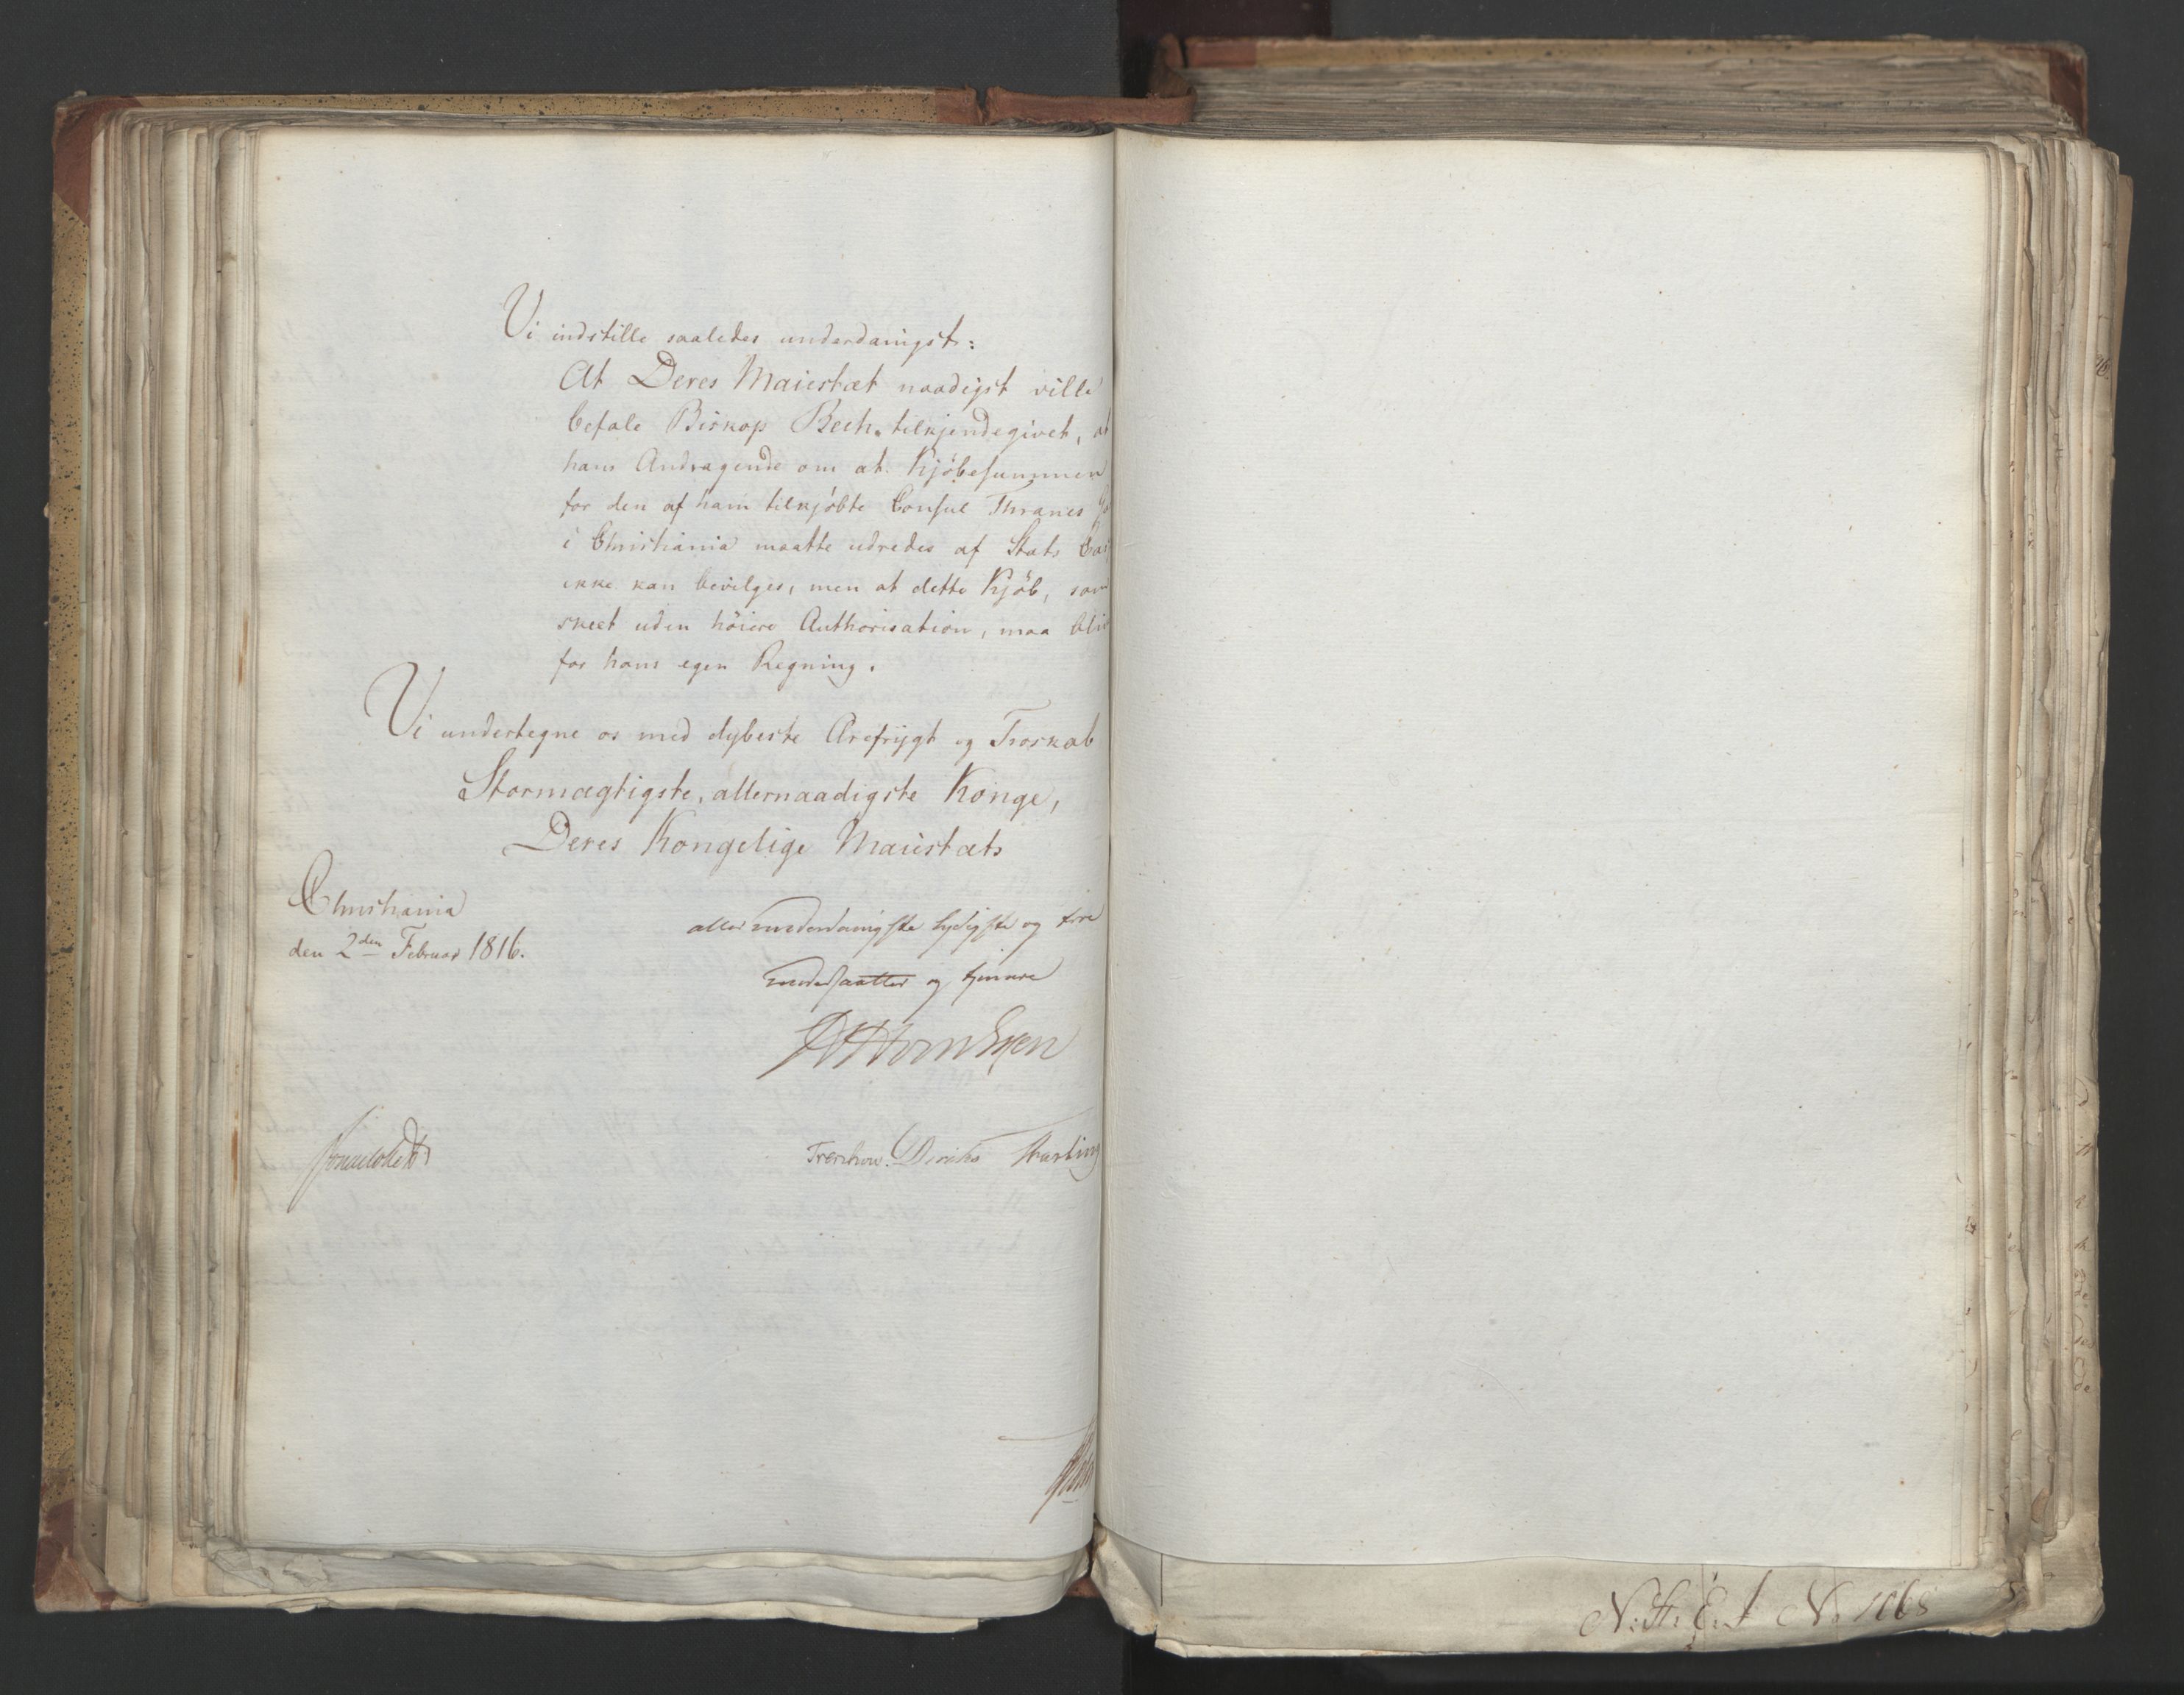 Vi indstille saaledes underdanigst:
At Deres Maiestæt naadigst ville
befale Biskop Bech tilkjendegivet, at
hans Andragende om at Kjöbesummen
for den af ham tilkjöbte Consul Thranes
i Christiania maatte udredes af Stats
ikke kan bevilges, men at dette Kjöb, som
skeet uden höiere Authorisation, maa
for hans egen Regning.
Vi undertegne os med dybeste Ærefrygt og Troskab
Stormægtigste, allernaadigste Konge,
Deres Kongelige Maiestæts
Christiania
den 2den Februar 1816.
allerunderdanigste lydigste og troe
undersaatter og tjenere
Treschow. Diriks
N: St: E: No 1068